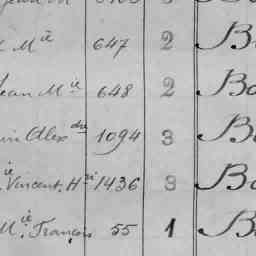 Mie 647 2 B
Jean Mie 648 2 Bo
Alexdre 1094 3 B
ie Vincent. Hri 1436 3 Bo
Mie François 55 1 B